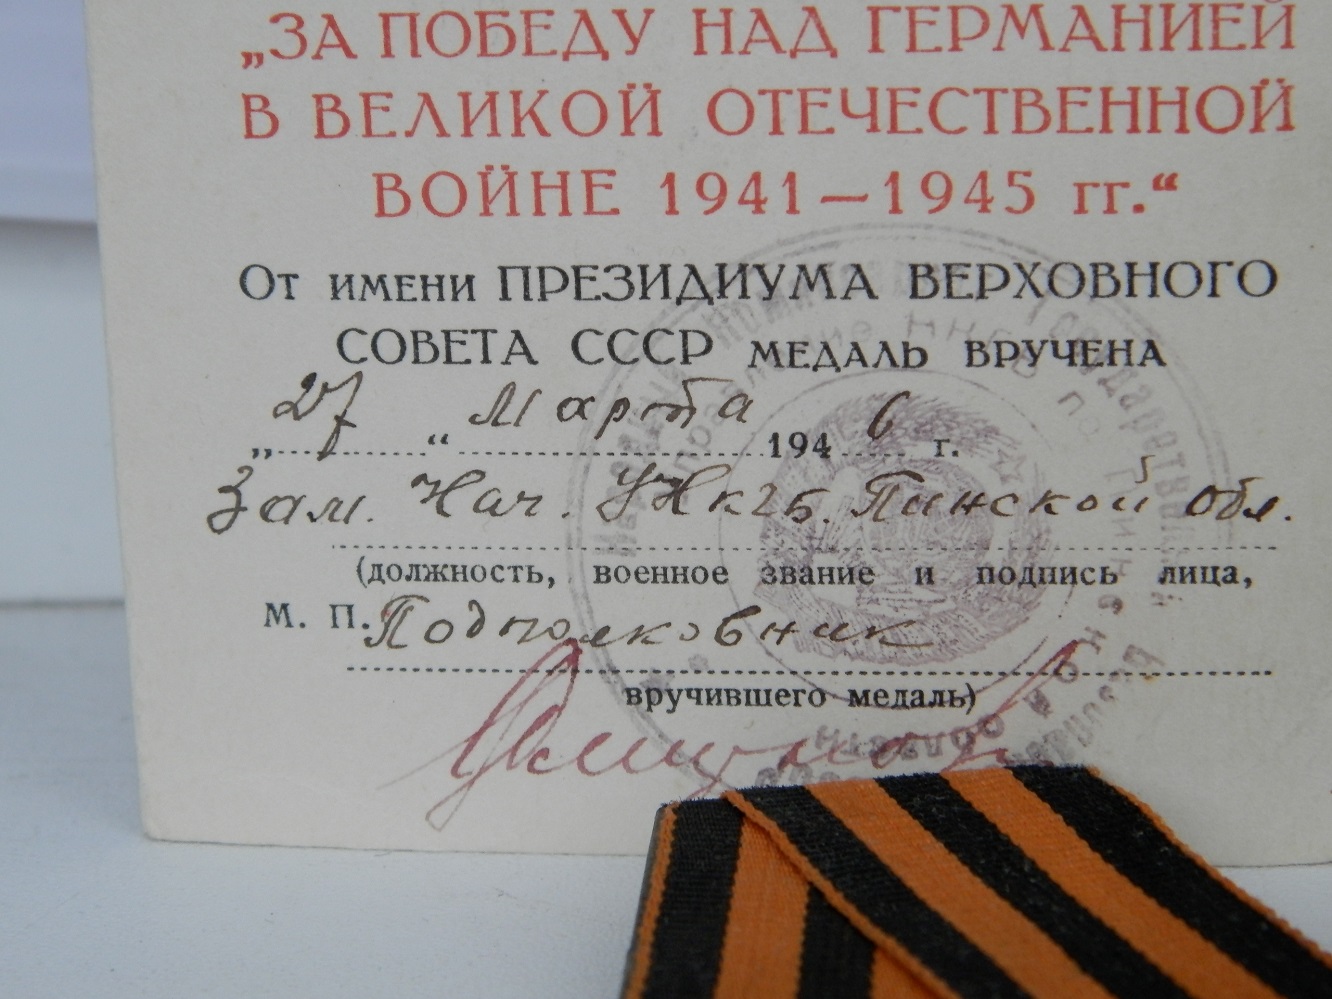 „ЗА ПОБЕДУ НАД ГЕРМАНИЕЙ
В ВЕЛИКОЙ ОТЕЧЕСТВЕННОЙ
ВОЙНЕ 1941—1945 гг.“
От имени ПРЕЗИДИУМА ВЕРХОВНОГО
СОВЕТА СССР МЕДАЛЬ ВРУЧЕНА
„27“ Марта 1946 г.
Зам. Нач. УНКГБ. Пинской обл.
(должность, военное звание и подпись лица,
М. П. Подполковник
вручившего медаль)